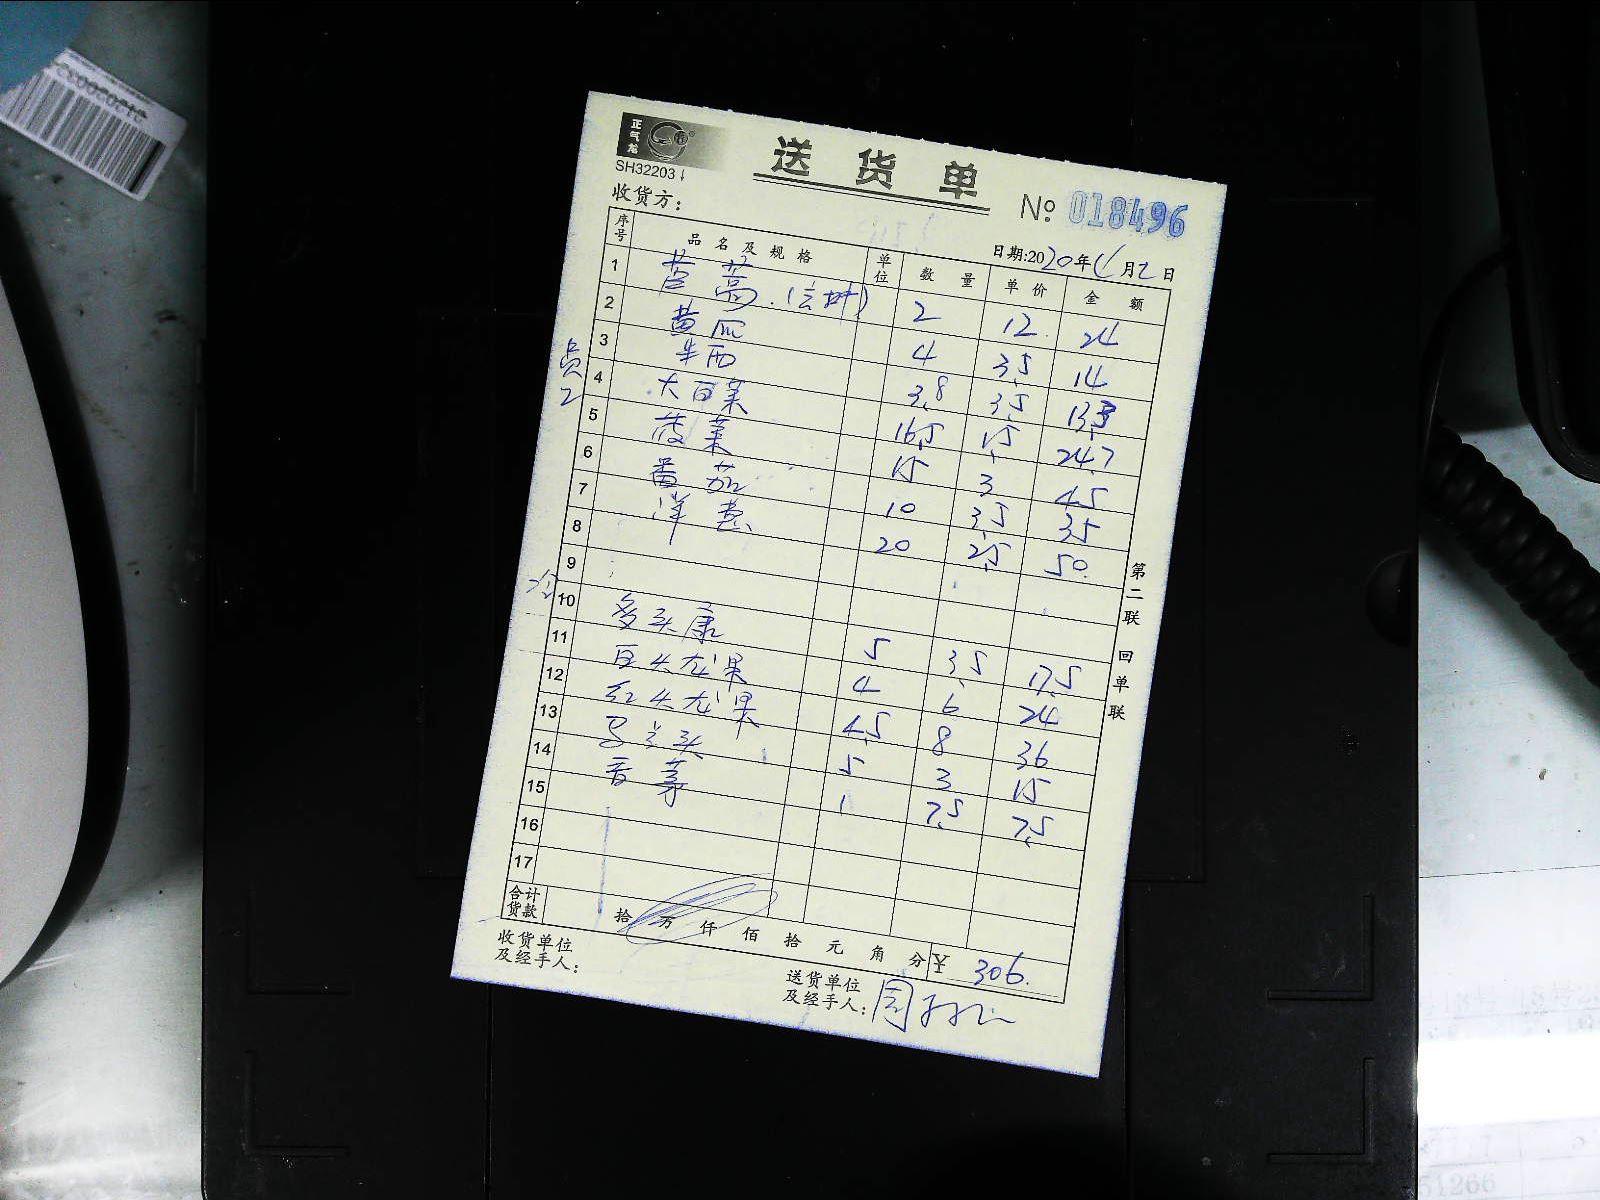 正气龙
SH32203
送货单
№ 018496
收货方：
日期:2020年 月2日
序号 品名及规格 单位 数量 单价 金额
1 茼蒿 2 12 24
2 黄瓜 4 3.5 14
3 3.8 3.5 13.3
4 大白菜 16.5 1.5 24.7
5 菠菜 15 3 45
6 番茄 10 3.5 35
7 洋葱 20 2.5 50
8
9
10 5 3.5 17.5
11 白火龙果 4 6 24
12 红火龙果 4.5 8 36
13 5 3 15
14 香芽 1 7.5 7.5
15
16
17
合计货款 拾 万 仟 佰 拾 元 角 分 ¥ 306.
收货单位及经手人：
送货单位及经手人：周
第二联 回单联